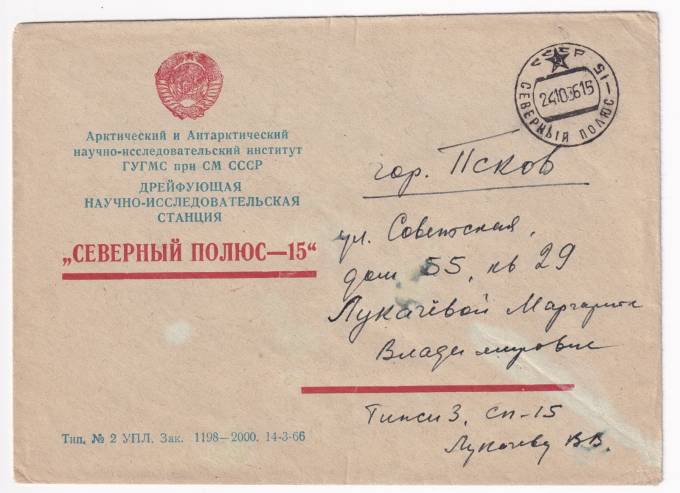 Арктический и Антарктический
научно-исследовательский институт
ГУГМС при СМ СССР
ДРЕЙФУЮЩАЯ
НАУЧНО-ИССЛЕДОВАТЕЛЬСКАЯ
СТАНЦИЯ
„СЕВЕРНЫЙ ПОЛЮС—15“
Тип. № 2 УПЛ. Зак. 1198—2000. 14-3-66
СССР
СЕВЕРНЫЙ ПОЛЮС—15
гор. Псков
ул. Советская,
дом 55, кв 29
Лукачёвой Маргарите
Владимировне
Тикси 3, СП-15
Лукачеву В.В.